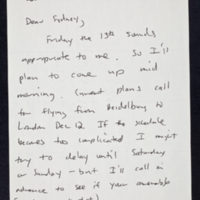 Dear Sydney,
Friday the 13th sounds
appropriate to me. So I'll
plan to come up mid
morning. Current plans call
for flying from Heidelberg to
London Dec 12 If the schedule
becomes too complicated I might
try to delay until Saturday
or Sunday – but I'll call in
advance to see if your